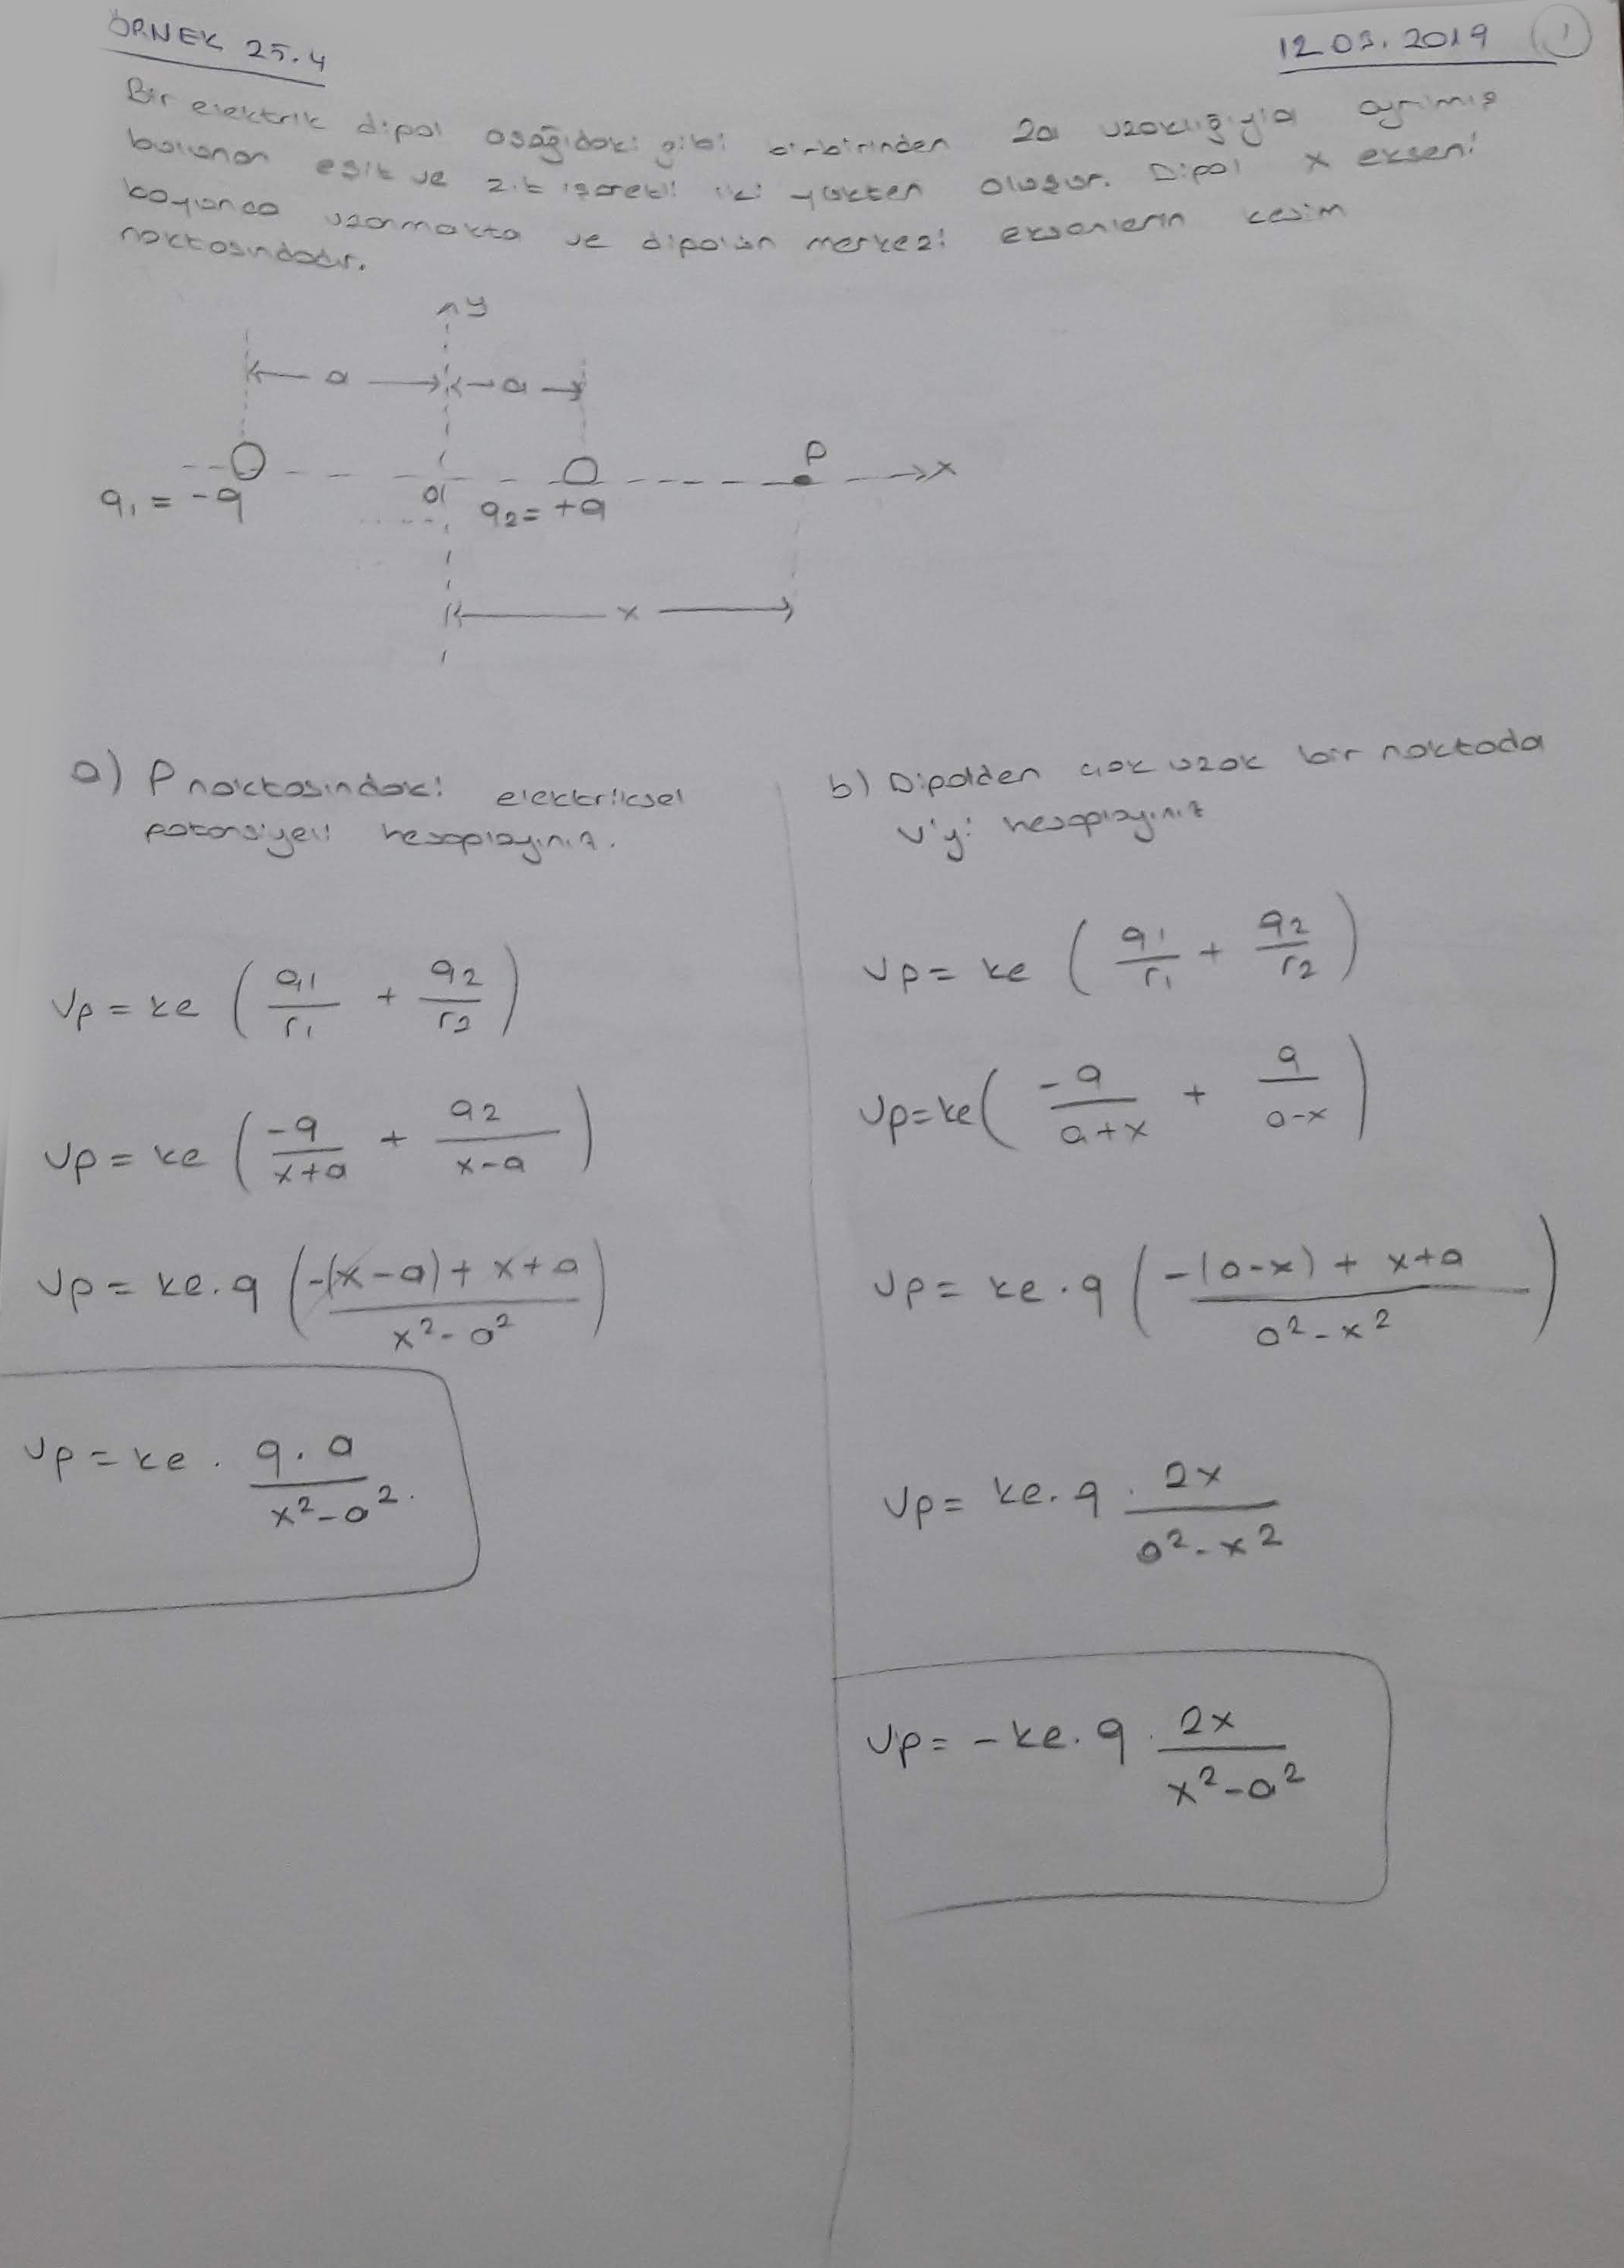 ÖRNEK 25.4
12.03.2019 1
Bir elektrik dipol aşağıdaki gibi birbirinden 2a uzaklığıyla ayrılmış
bulunan eşit ve zıt işaretli iki yükten oluşur. Dipol x ekseni
boyunca uzanmakta ve dipolün merkezi eksenlerin kesim
noktasındadır.
y
a a
P
x
q1 = -q 0 q2 = +q
x
a) P noktasındaki elektriksel
potansiyeli hesaplayınız.
Vp = ke ( q1/r1 + q2/r2 )
Vp = ke ( -q/x+a + q2/x-a )
Vp = ke.q ( -(x-a) + x+a / x²-a² )
Vp = ke . q.a / x²-a².
b) Dipolden çok uzak bir noktada
V'yi hesaplayınız
Vp = ke ( q1/r1 + q2/r2 )
Vp = ke ( -q/a+x + q/a-x )
Vp = ke.q ( -(a-x) + x+a / a²-x² )
Vp = ke.q . 2x / a²-x²
Vp = -ke.q . 2x / x²-a²